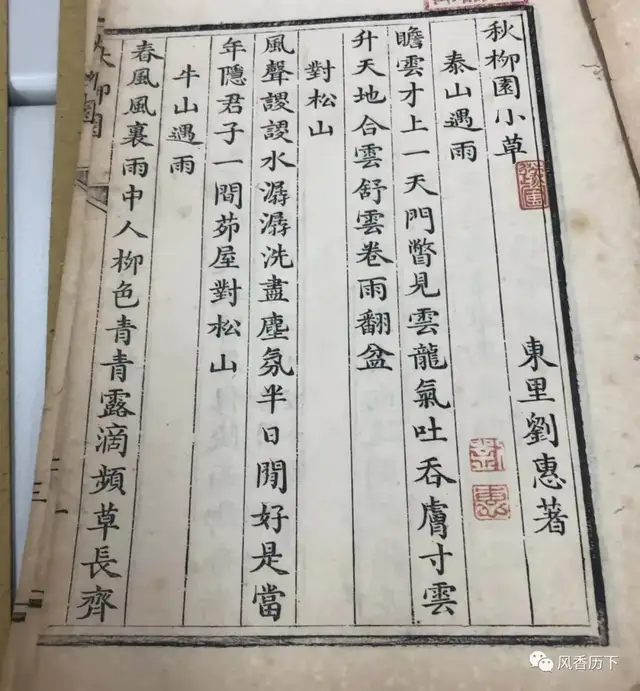 秋柳園小草
東里劉惠著
泰山遇雨
瞻雲才上一天門瞥見雲龍氣吐吞膚寸雲
升天地合雲舒雲卷雨翻盆
對松山
風聲謖謖水潺潺洗盡塵氛半日閒好是當
年隱君子一間茆屋對松山
牛山遇雨
春風風裏雨中人柳色青青露滴頻草長齊
风香历下